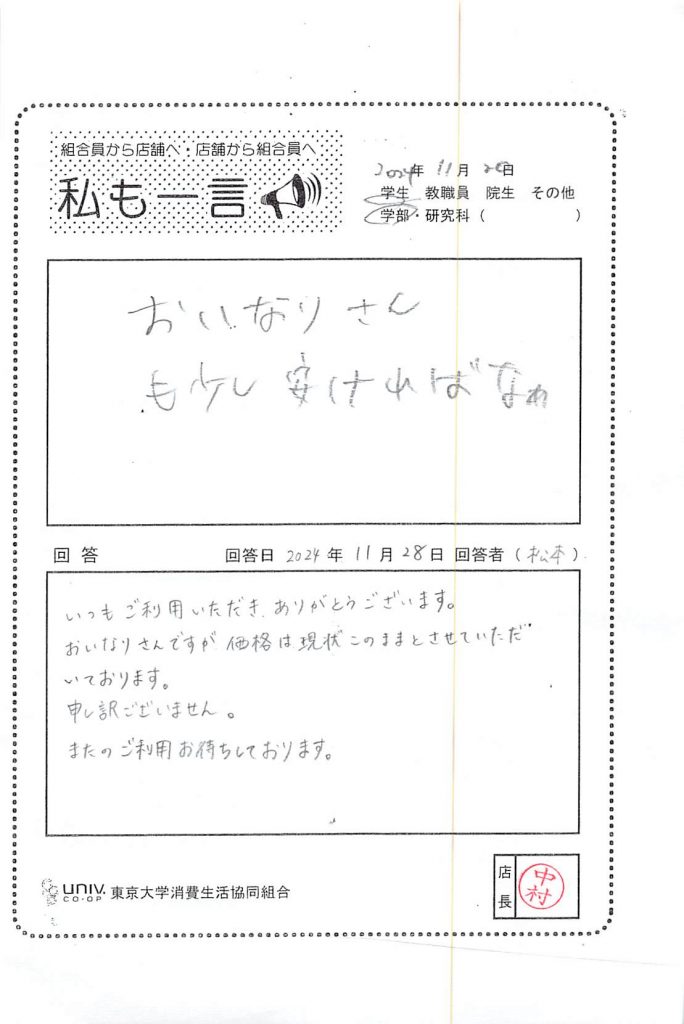 組合員から店舗へ・店舗から組合員へ
私も一言
2024年 11月 20日
学生 教職員 院生 その他
学部・研究科（ ）
おいなりさん
も少し安ければなぁ
回答 回答日 2024年 11月 28日 回答者（松本）
いつもご利用いただき、ありがとうございます。
おいなりさんですが、価格は現状このままとさせていただ
いております。
申し訳ございません。
またのご利用お待ちしております。
UNIV. CO-OP 東京大学消費生活協同組合
店長
中村